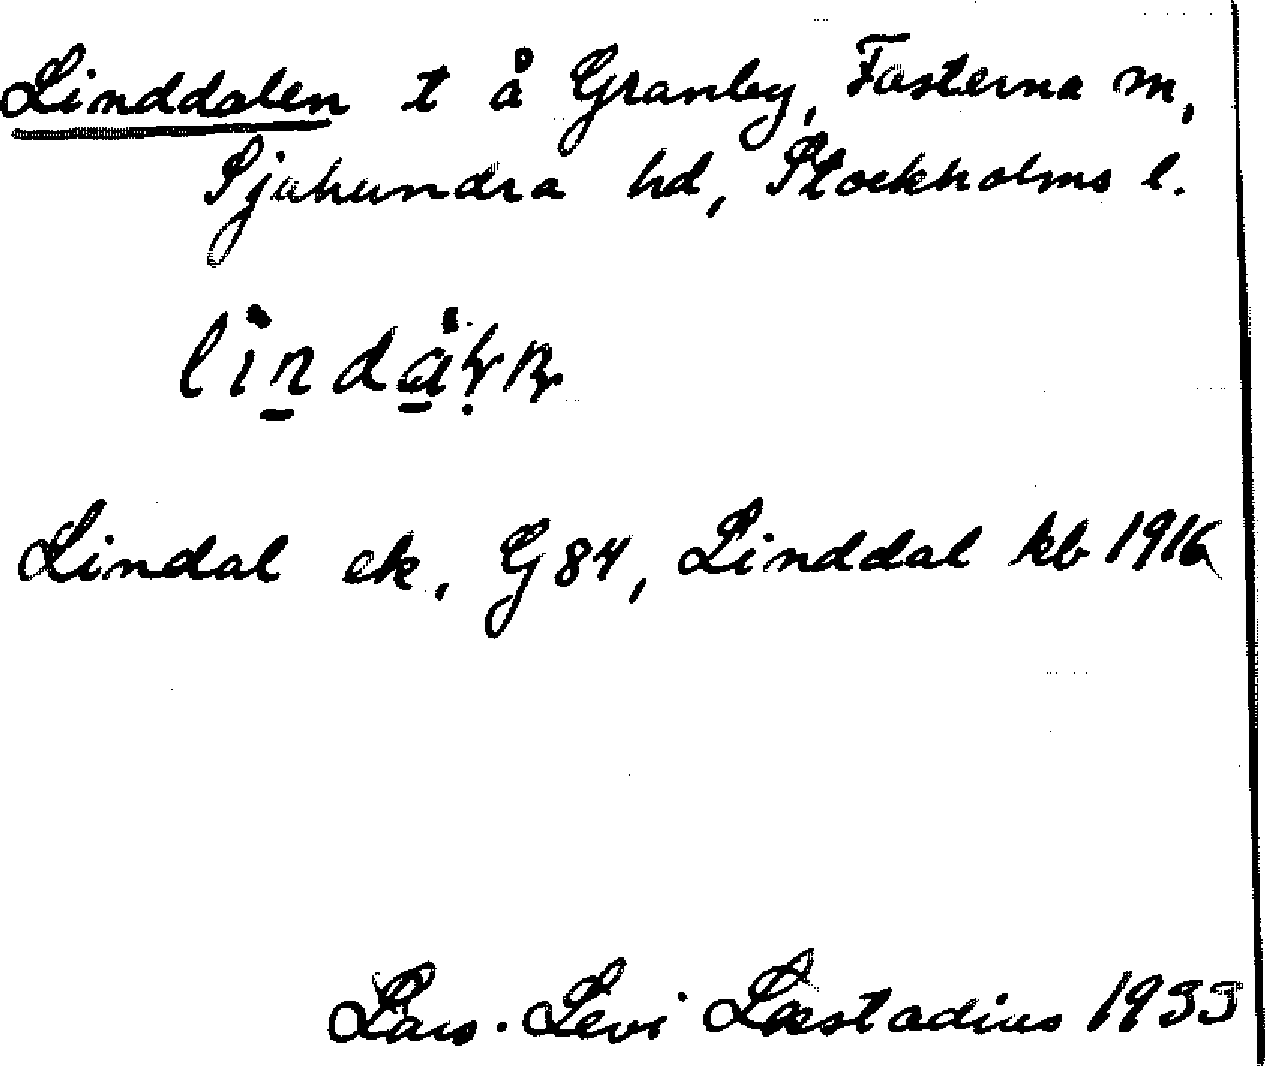 Linddalen t å Granby, Fasterna sn,
Sjuhundra hd, Stockholms l.
Lindal ek, G84, Linddal kb 1916
Lars-Levi Læstadius 1933